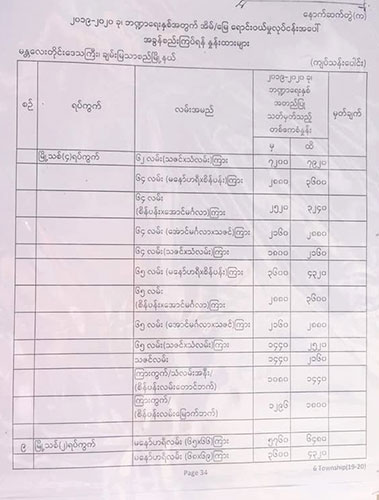 နောက်ဆက်တွဲ(က)
၂၀၁၉-၂၀၂၀ ခု၊ ဘဏ္ဍာရေးနှစ်အတွက် အိမ်/မြေ ရောင်းဝယ်မှုလုပ်ငန်းအပေါ်
အခွန်စည်းကြပ်ရန် နှုန်းထားများ
မန္တလေးတိုင်းဒေသကြီး၊ ချမ်းမြသာစည်မြို့နယ်
(ကျပ်သန်းပေါင်း)
စဉ် ရပ်ကွက် လမ်းအမည် ၂၀၁၉-၂၀၂၀ ခု၊ ဘဏ္ဍာရေးနှစ် အတည်ပြု သတ်မှတ်သည့် တစ်ဧကစံနှုန်း မှတ်ချက်
မှ ထိ
မြို့သစ်(၄)ရပ်ကွက် ၆၂ လမ်း(သဇင်xသံလမ်း)ကြား ၇၂၀၀ ၇၉၂၀
၆၄ လမ်း (မနော်ဟရီxစိန်ပန်း)ကြား ၂၈၈၀ ၃၆၀၀
၆၄ လမ်း
(စိန်ပန်းxအောင်မင်္ဂလာ)ကြား ၂၅၂၀ ၃၂၄၀
၆၄ လမ်း (အောင်မင်္ဂလာxသဇင်)ကြား ၂၁၆၀ ၂၈၈၀
၆၄ လမ်း(သဇင်xသံလမ်း)ကြား ၁၈၀၀ ၂၁၆၀
၆၅ လမ်း (မနော်ဟရီxစိန်ပန်း)ကြား ၃၆၀၀ ၄၃၂၀
၆၅ လမ်း
(စိန်ပန်းxအောင်မင်္ဂလာ)ကြား ၂၈၈၀ ၃၆၀၀
၆၅ လမ်း (အောင်မင်္ဂလာxသဇင်)ကြား ၂၁၆၀ ၂၈၈၀
၆၅ လမ်း(သဇင်xသံလမ်း)ကြား ၁၄၄၀ ၂၅၂၀
သဇင်လမ်း ၁၄၄၀ ၂၁၆၀
ကြားကွက်/သံလမ်းအနီး/
(စိန်ပန်းလမ်းတောင်ဘက်) ၁၀၈၀ ၁၄၄၀
ကြားကွက်/
(စိန်ပန်းလမ်းမြောက်ဘက်) ၁၂၉၆ ၁၈၀၀
၉ မြို့သစ်(၂)ရပ်ကွက် မနော်ဟရီလမ်း (၆၅x၆၆)ကြား ၅၇၆၀ ၆၄၈၀
မနော်ဟရီလမ်း (၆၈x၆၉)ကြား ၃၆၀၀ ၄၃၂၀
Page 34
6 Township(19-20)